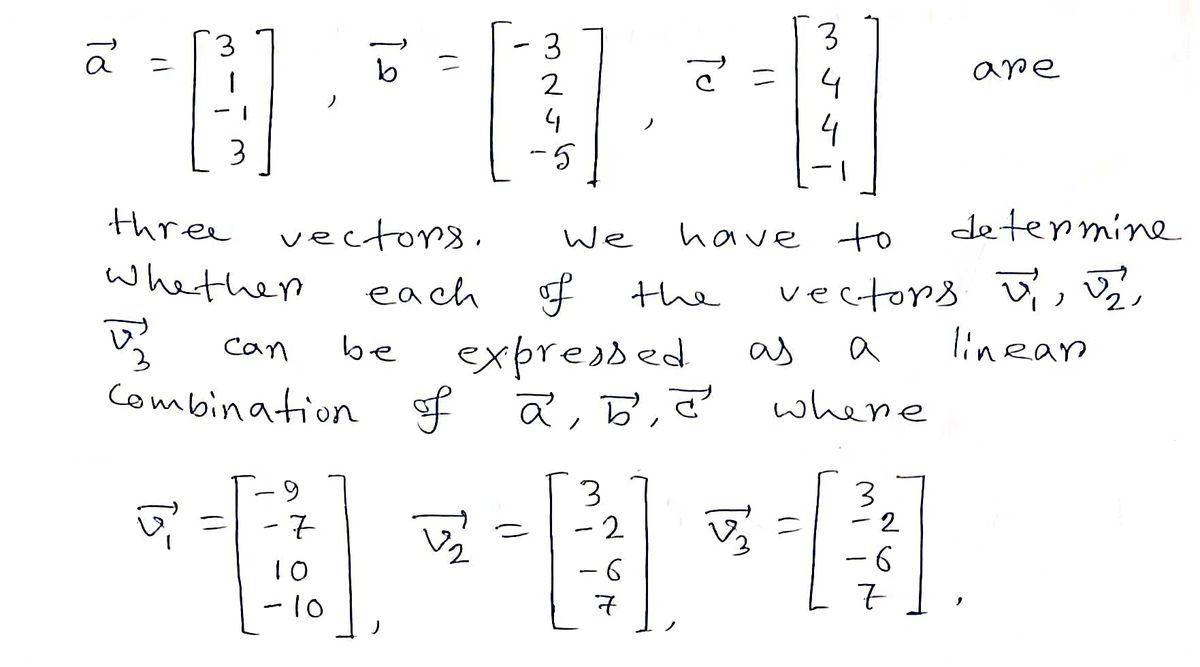 a⃗ = [3 1 -1 3], b⃗ = [-3 2 4 -5], c⃗ = [3 4 4 -1] are
three vectors. We have to determine
whether each of the vectors v⃗₁, v⃗₂,
v⃗₃ can be expressed as a linear
combination of a⃗, b⃗, c⃗ where
v⃗₁ = [-9 -7 10 -10], v⃗₂ = [3 -2 -6 7], v⃗₃ = [3 -2 -6 7].